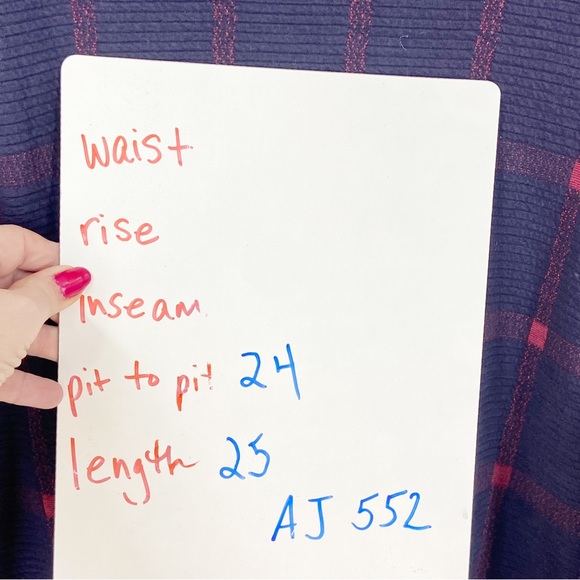 waist
rise
inseam
pit to pit 24
length 25
AJ 552